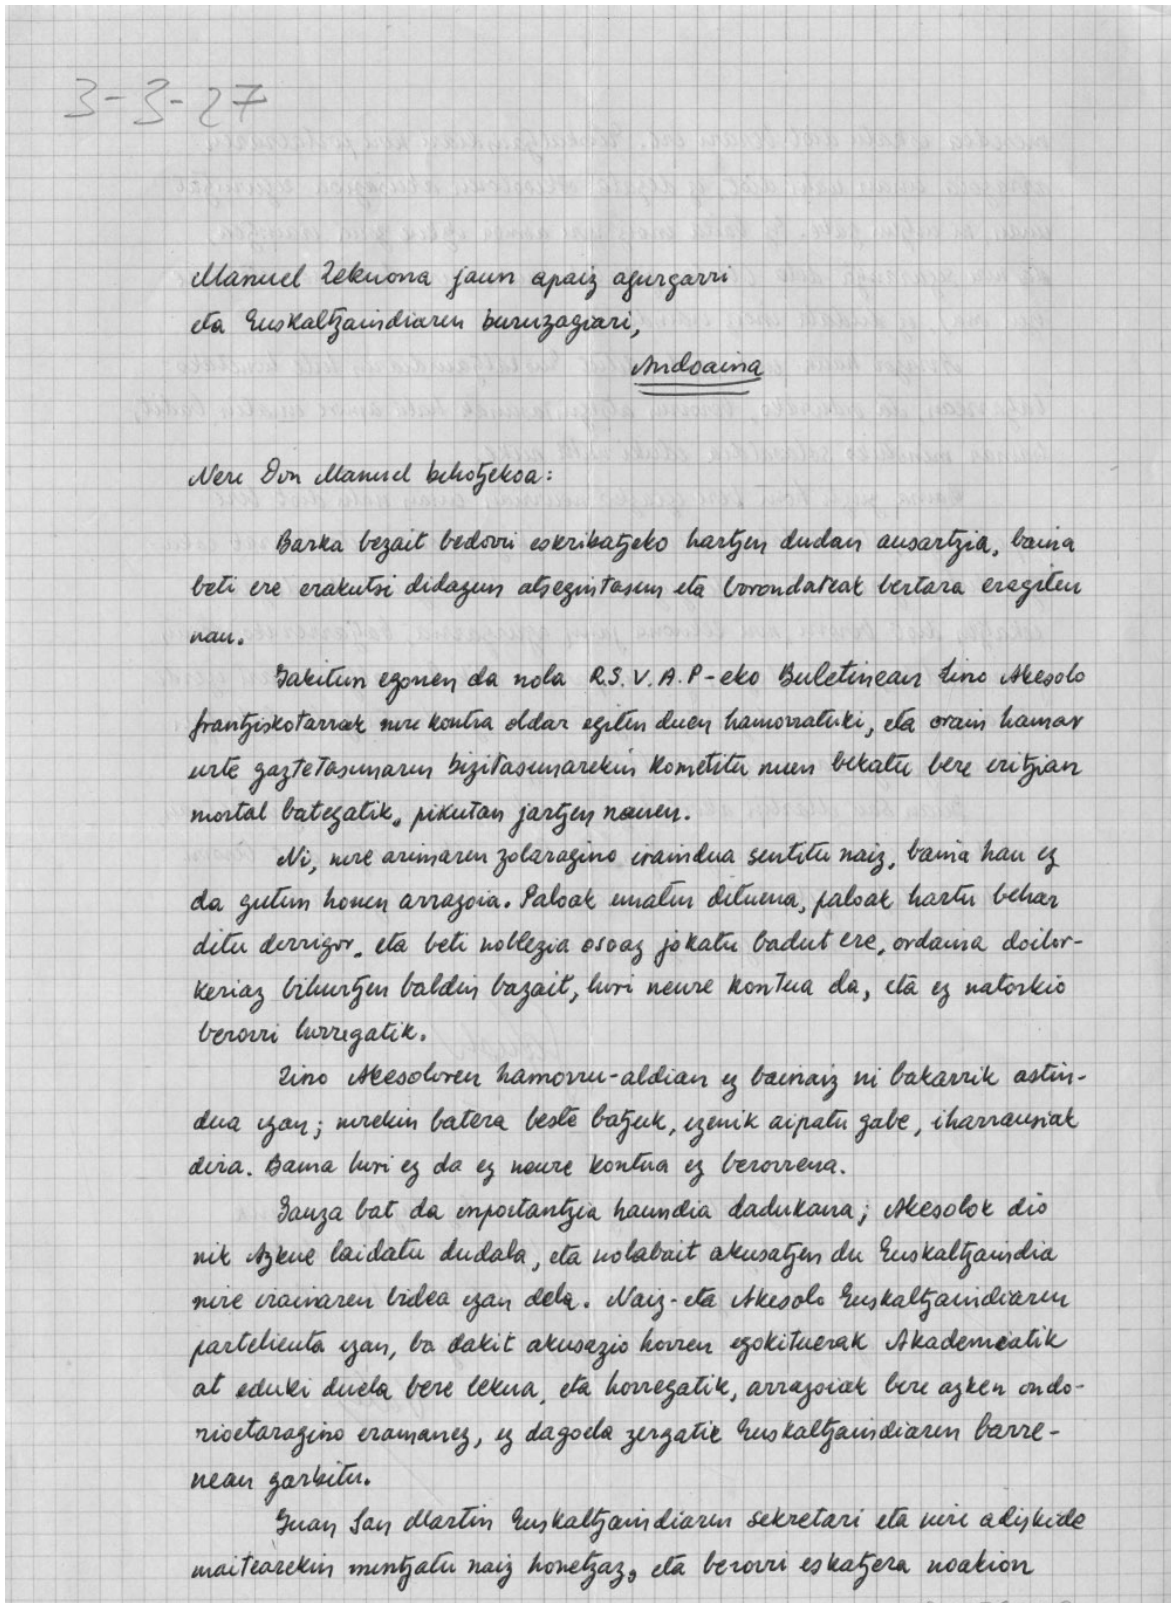 3-3-27
Manuel Lekuona jaun apaiz agurgarri
eta Euskaltzaindiaren buruzagiari,
Andoaina
Nere Don Manuel bihotzekoa:
Barka bezait bedorri eskribatzeko hartzen dudan ausartzia, baina
beti ere erakutsi didazun atsegintasun eta borondateak bertara eragiten
nau.
Jakitun egonen da nola R.S.V.A.P-eko Buletinean Lino Akesolo
frantziskotarrak nire kontra oldar egiten duen hamorratuki, eta orain hamar
urte gaztetasunaren bizitasunarekin kometitu nuen bekatu bere iritzian
mortal bategatik, pikutan jartzen nauen.
Ni, nire arimaren zolaragino iraindua sentitu naiz, baina hau ez
da gutun honen arrazoia. Paloak ematen dituena, paloak hartu behar
ditu derrigor, eta beti noblezia osoaz jokatu badut ere, ordaina doilor-
keriaz bihurtzen baldin bazait, hori neure kontua da, eta ez natorkio
berorri horregatik.
Lino Akesoloren hamorru-aldian ez bainaiz ni bakarrik astin-
dua izan; nirekin batera beste batzuk, izenik aipatu gabe, iharrausiak
dira. Baina hori ez da ez neure kontua ez berorrena.
Gauza bat da inportantzia haundia dadukana; Akesolok dio
nik Azkue laidatu dudala, eta nolabait akusatzen du Euskaltzaindia
nire irainaren bidea izan dela. Naiz-eta Akesolo Euskaltzaindiaren
partehienta izan, ba dakit akusazio horren egokituerak Akademiatik
at eduki duela bere lekua, eta horregatik, arrazoiak bere azken ondo-
rioetaragino eramanez, ez dagoela zergatik Euskaltzaindiaren barre-
nean garbitu.
Juan San Martin Euskaltzaindiaren sekretari eta nire adiskide
maitearekin mintzatu naiz honetzaz, eta berorri eskatzera noakion